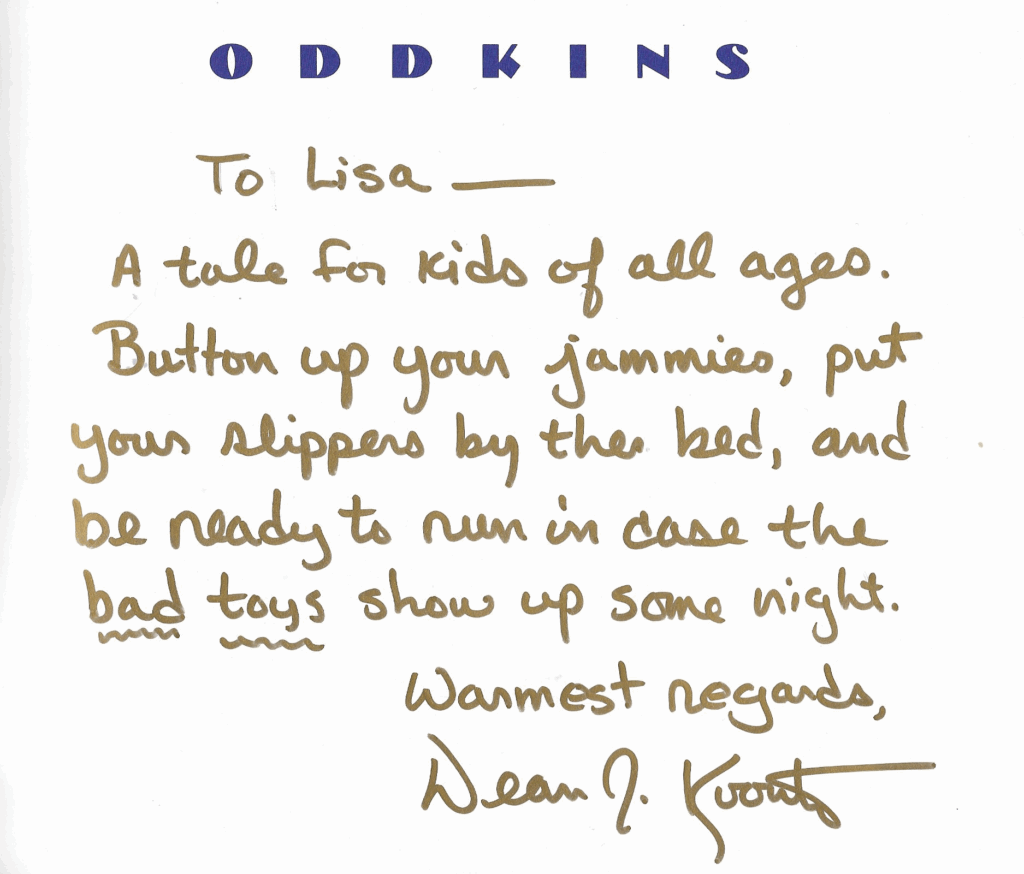 ODDKINS
To Lisa —
A tale for kids of all ages.
Button up your jammies, put
your slippers by the bed, and
be ready to run in case the
bad toys show up some night.
Warmest regards,
Dean J. Koontz